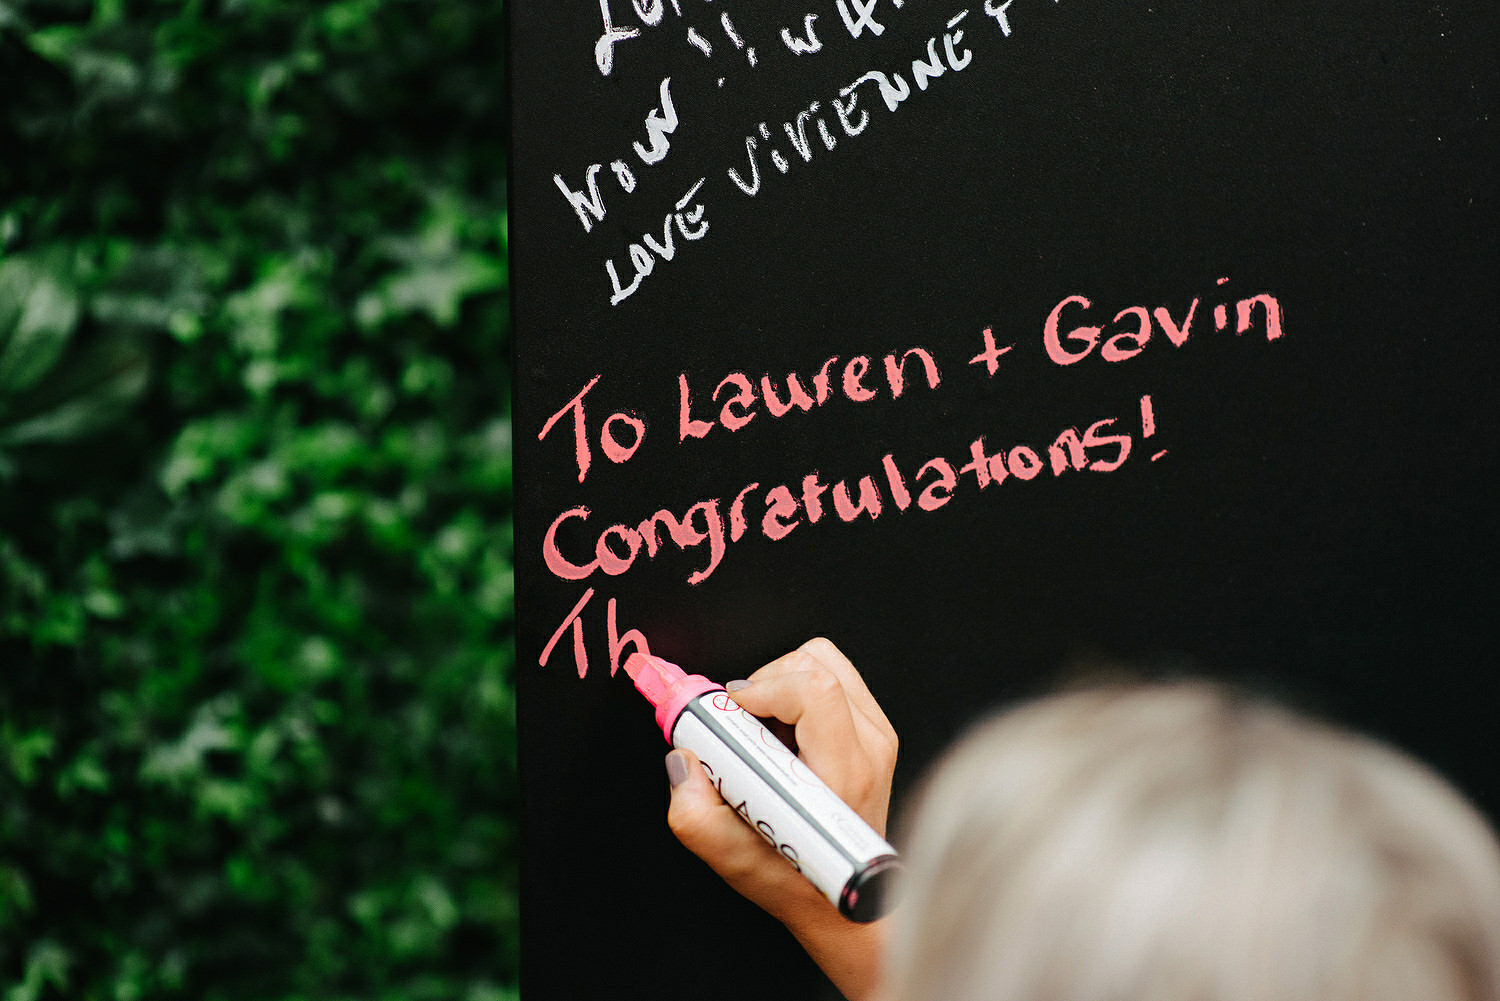 WOW !! WHA
LOVE ViViENNE +
To Lauren + Gavin
Congratulations!
Th
GLASS